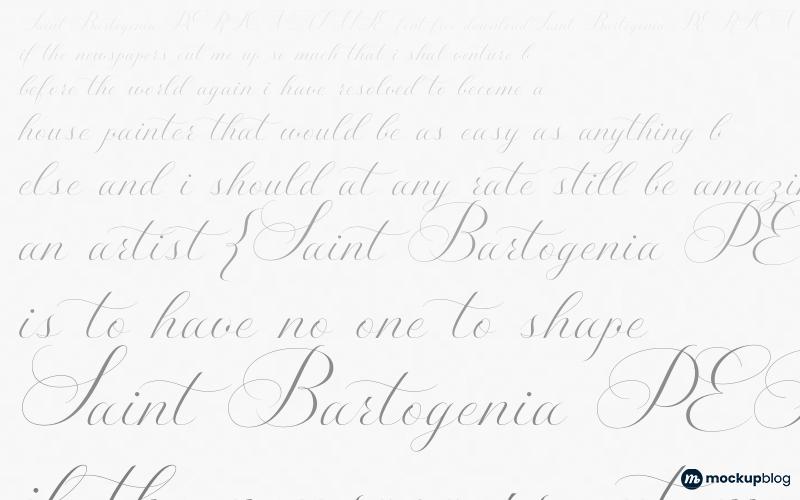 Saint Bartogenia PERSONAL USE font free download Saint Bartogenia PERSON
if the newspapers cut me up so much that i shal venture b
before the world again i have resolved to become a
house painter that would be as easy as anything b
else and i should at any rate still be amazin
an artist {Saint Bartogenia PE
is to have no one to shape
Saint Bartogenia PE
if the newspapers
mockupblog